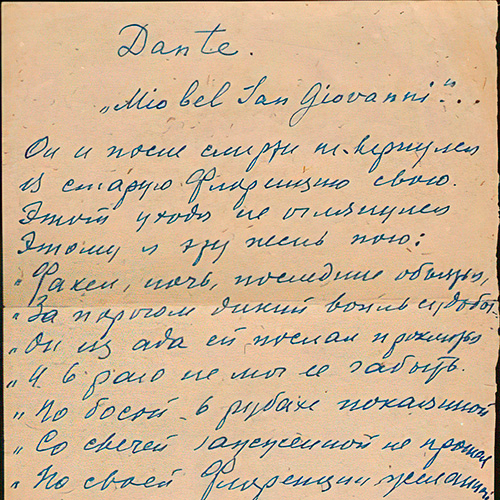 Dante.
„Mio bel San Giovanni"...
Он и после смерти не вернулся
В старую Флоренцию свою.
Этот уходя не оглянулся
Этому я эту песнь пою:
„Факел, ночь, последние объятья,
„За порогом дикий вопль судьбы.
„Он из ада ей послал проклятье
„И в раю не мог ее забыть.
„Но босой - в рубахе покаянной
„Со свечей зажжённой не прошел
„По своей Флоренции желанной